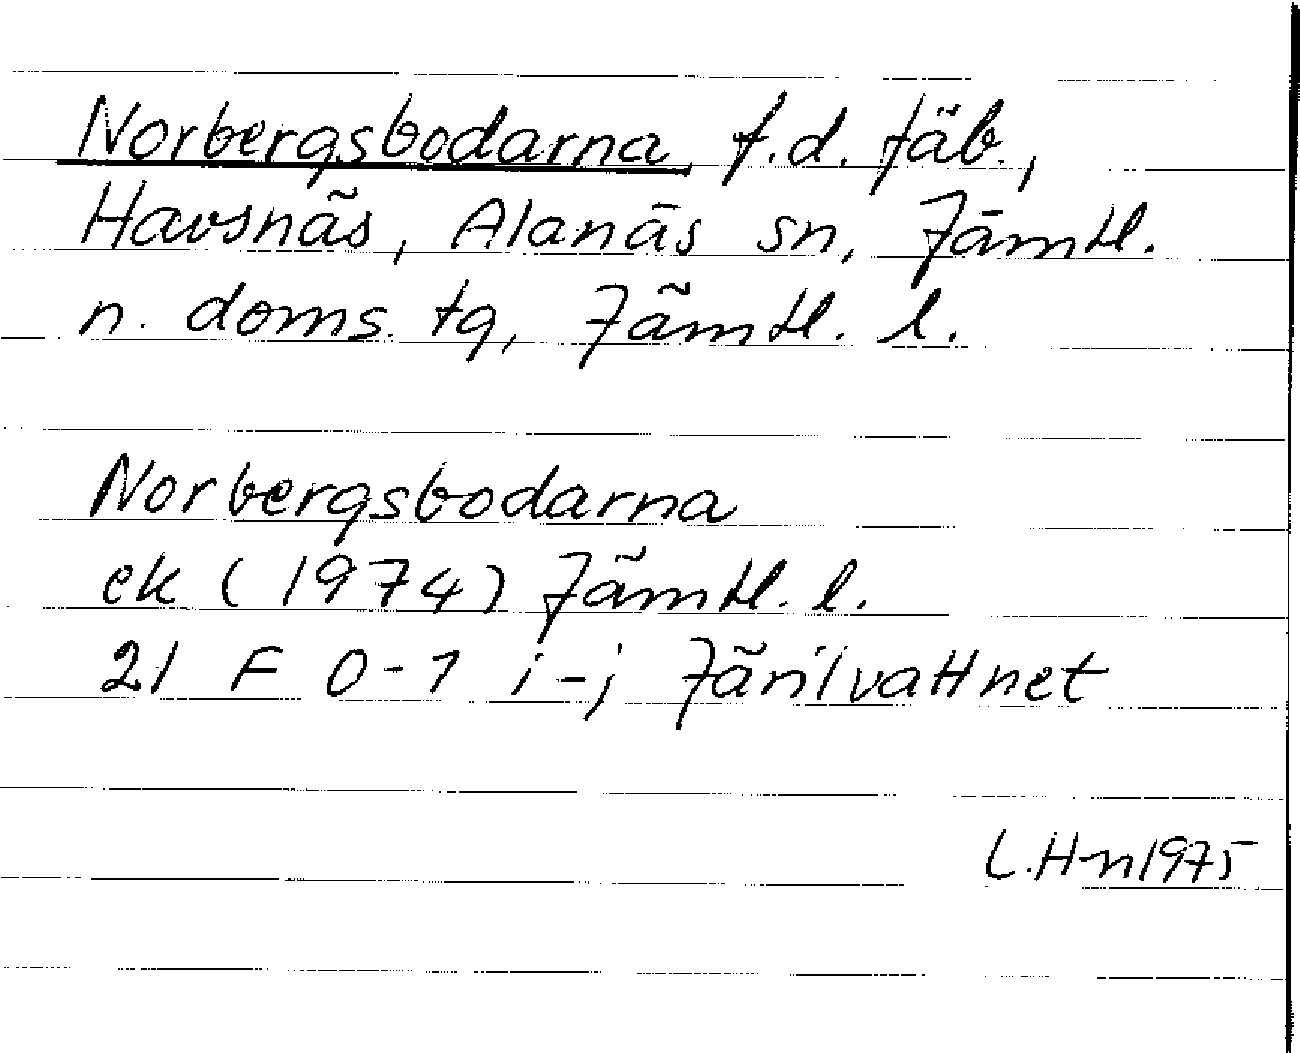 Norbergsbodarna, f.d. fäb.,
Havsnäs, Alanäs sn, Jämtl.
n. doms. tg, Jämtl. l.
Norbergsbodarna
ek (1974) Jämtl. l.
21 F 0-1 i-j Järilvattnet
L.Hn1975